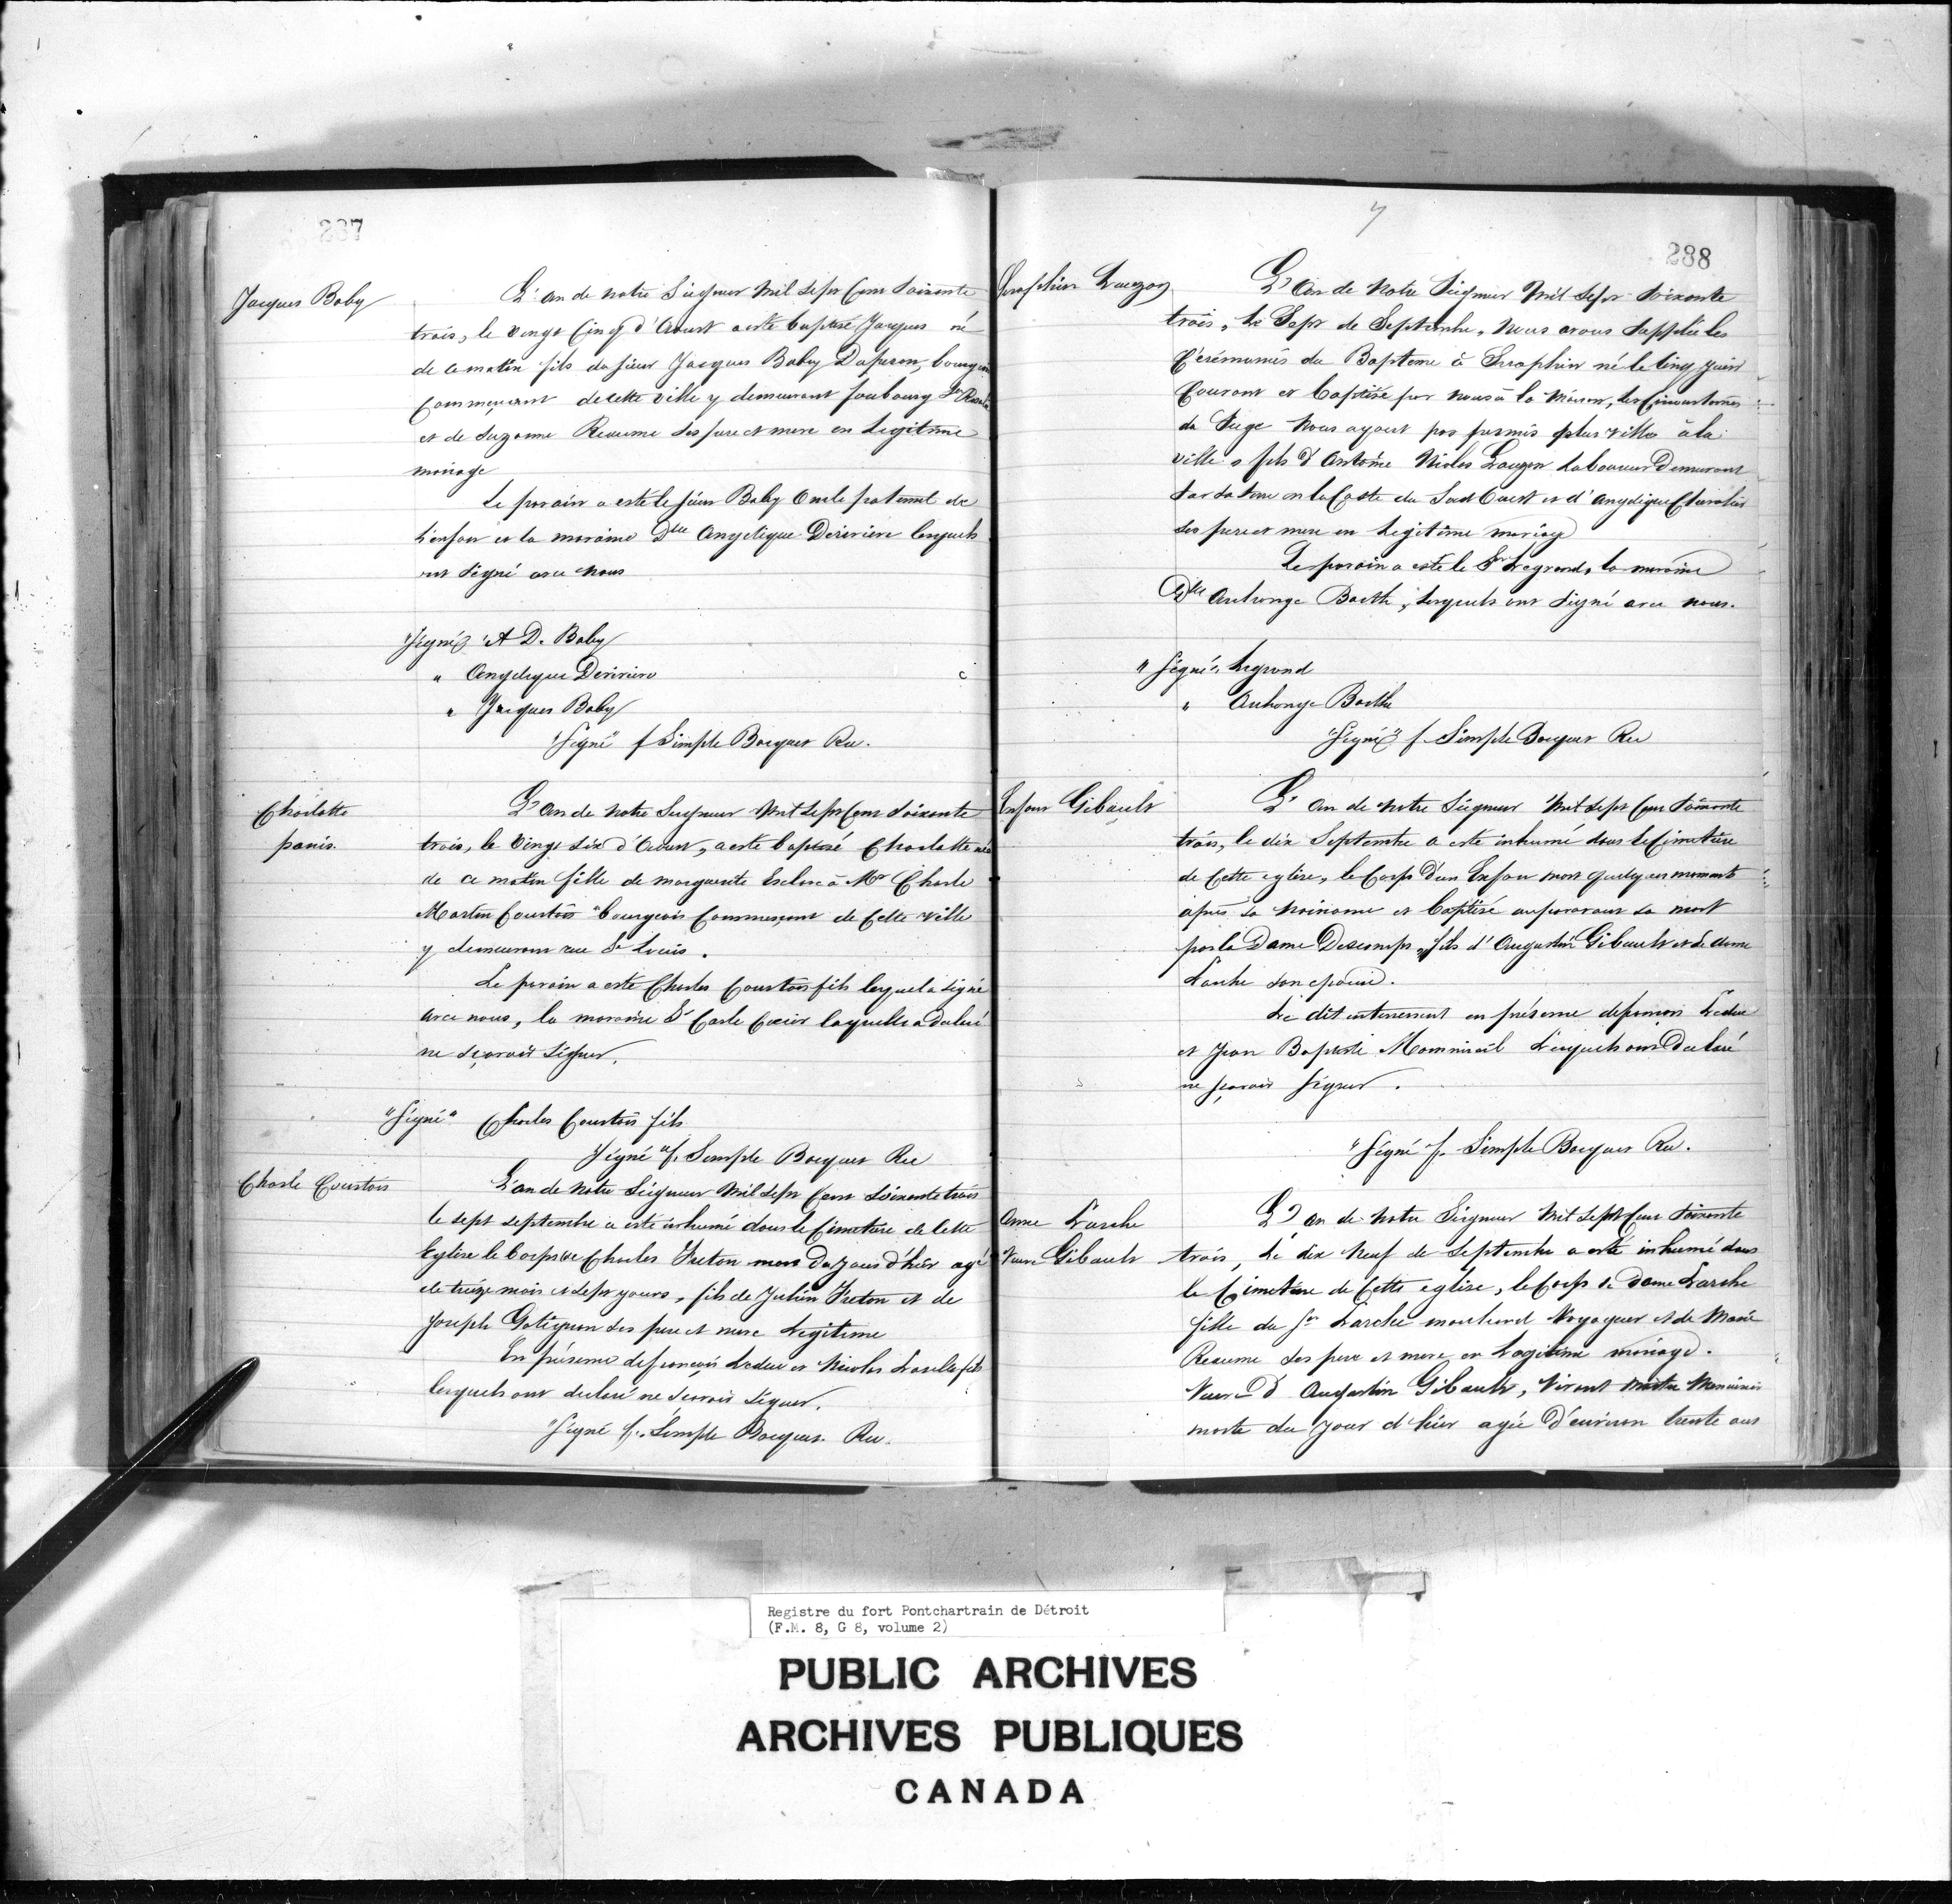 287
Jacques Baby
L'an de notre Seigneur Mil Sept Cent Soixante
trois, le vingt Cinq d'Aoust a esté baptisé Jacques né
de ce matin fils du Sieur Jacques Baby Duperon, bourgeois
Commerçant de cette ville y demeurant foubourg Ste Rosalie
et de Suzanne Reaume ses pere et mere en Legitime
mariage
Le parain a esté le sieur Baby Oncle paternel de
L'enfant et la maraine Dlle Angelique Deriviere lesquels
ont Signé avec nous
"Signé" A D. Baby
" Angelique Deriviere
" Jacques Baby
"Signé" f Simple Bocquet Rec.
Charlotte
panis.
L'an de Notre Seigneur Mil Sept Cent Soixante
trois, le Vingt Six d'Aoust, a esté baptisé Charlotte née
de ce matin fille de marguerite Esclave à Mr Charle
Martin Courtois bourgeois Commerçant de Cette ville
y demeurant rue St Louis.
Le parain a esté Charles Courtois fils lequel a signé
avec nous, la maraine laquelle a declaré
ne sçavoir Signer.
"Signé" Charles Courtois fils
Signé "f. Simple Bocquet Rec
Charle Courtois
L'an de Notre Seigneur Mil Sept Cent Soixante trois
le sept septembre a esté inhumé dans le Cimetiere de Cette
Eglise le Corps de Charles Freton mort du jour d'hier agé
de treize mois et sept jours, fils de Julien Freton et de
Joseph ses pere et mere Legitime
En présence de françois Leduc et Nicolas fils
lesquels ont declaré ne sçavoir Signer.
"Signé f. Simple Bocquet. Rec.
7
288
Seraphin Lauzon
L'An de Notre Seigneur Mil Sept Soixante
trois, Le Sept de Septembre, Nous avons Supplée les
Cérémonies du Bapteme à Seraphin né le Cinq Juin
Courant et baptisé par nous à la Maison, les Circonstances
du Siege Nous ayant pas permis à la
ville, fils d'Antoine Nicolas Lauzon Laboureur Demeurant
Sur Sa terre en la Coste du Sud Ouest et d'Angelique Chevalier
ses pere et mere en Legitime mariage
Le parain a este le Sr Legrand, la maraine
Dlle Archange Barthe, Lesquels ont Signé avec nous.
"Signé" Legrand
" Archange Barthe
"Signé" f. Simple Bocquet Rec
Enfant Gibault
L'an de Notre Seigneur Mil Sept Cent Soixante
trois, le dix Septembre a esté inhumé dans le Cimetiere
de Cette eglise, le Corps d'un Enfant mort quelques moments
après sa naissance et baptisé auparavant sa mort
par la Dame Descomps, fils d'Augustin Gibault et de dame
Larche son epouse.
Le dit enterrement en présence de françois Leduc
et Jean Baptiste Monmirel Lesquels ont Declaré
ne sçavoir Signer.
"Signé f. Simple Bocquet Rec.
Anne Larche
Veuve Gibault
L'an de Notre Seigneur Mil Sept Cent Soixante
trois, Le dix Neuf de Septembre a esté inhumé dans
le Cimetiere de Cette eglise, le Corps de Dame Larche
fille du Sr Larche marchand Voyageur et de Marie
Reaume ses pere et mere en Legitime mariage.
Veuve d'Augustin Gibault, Vivant Maitre Menuisier
morte du jour d'hier agée D'environ trente ans
Registre du fort Pontchartrain de Détroit
(F.M. 8, G 8, volume 2)
PUBLIC ARCHIVES
ARCHIVES PUBLIQUES
CANADA